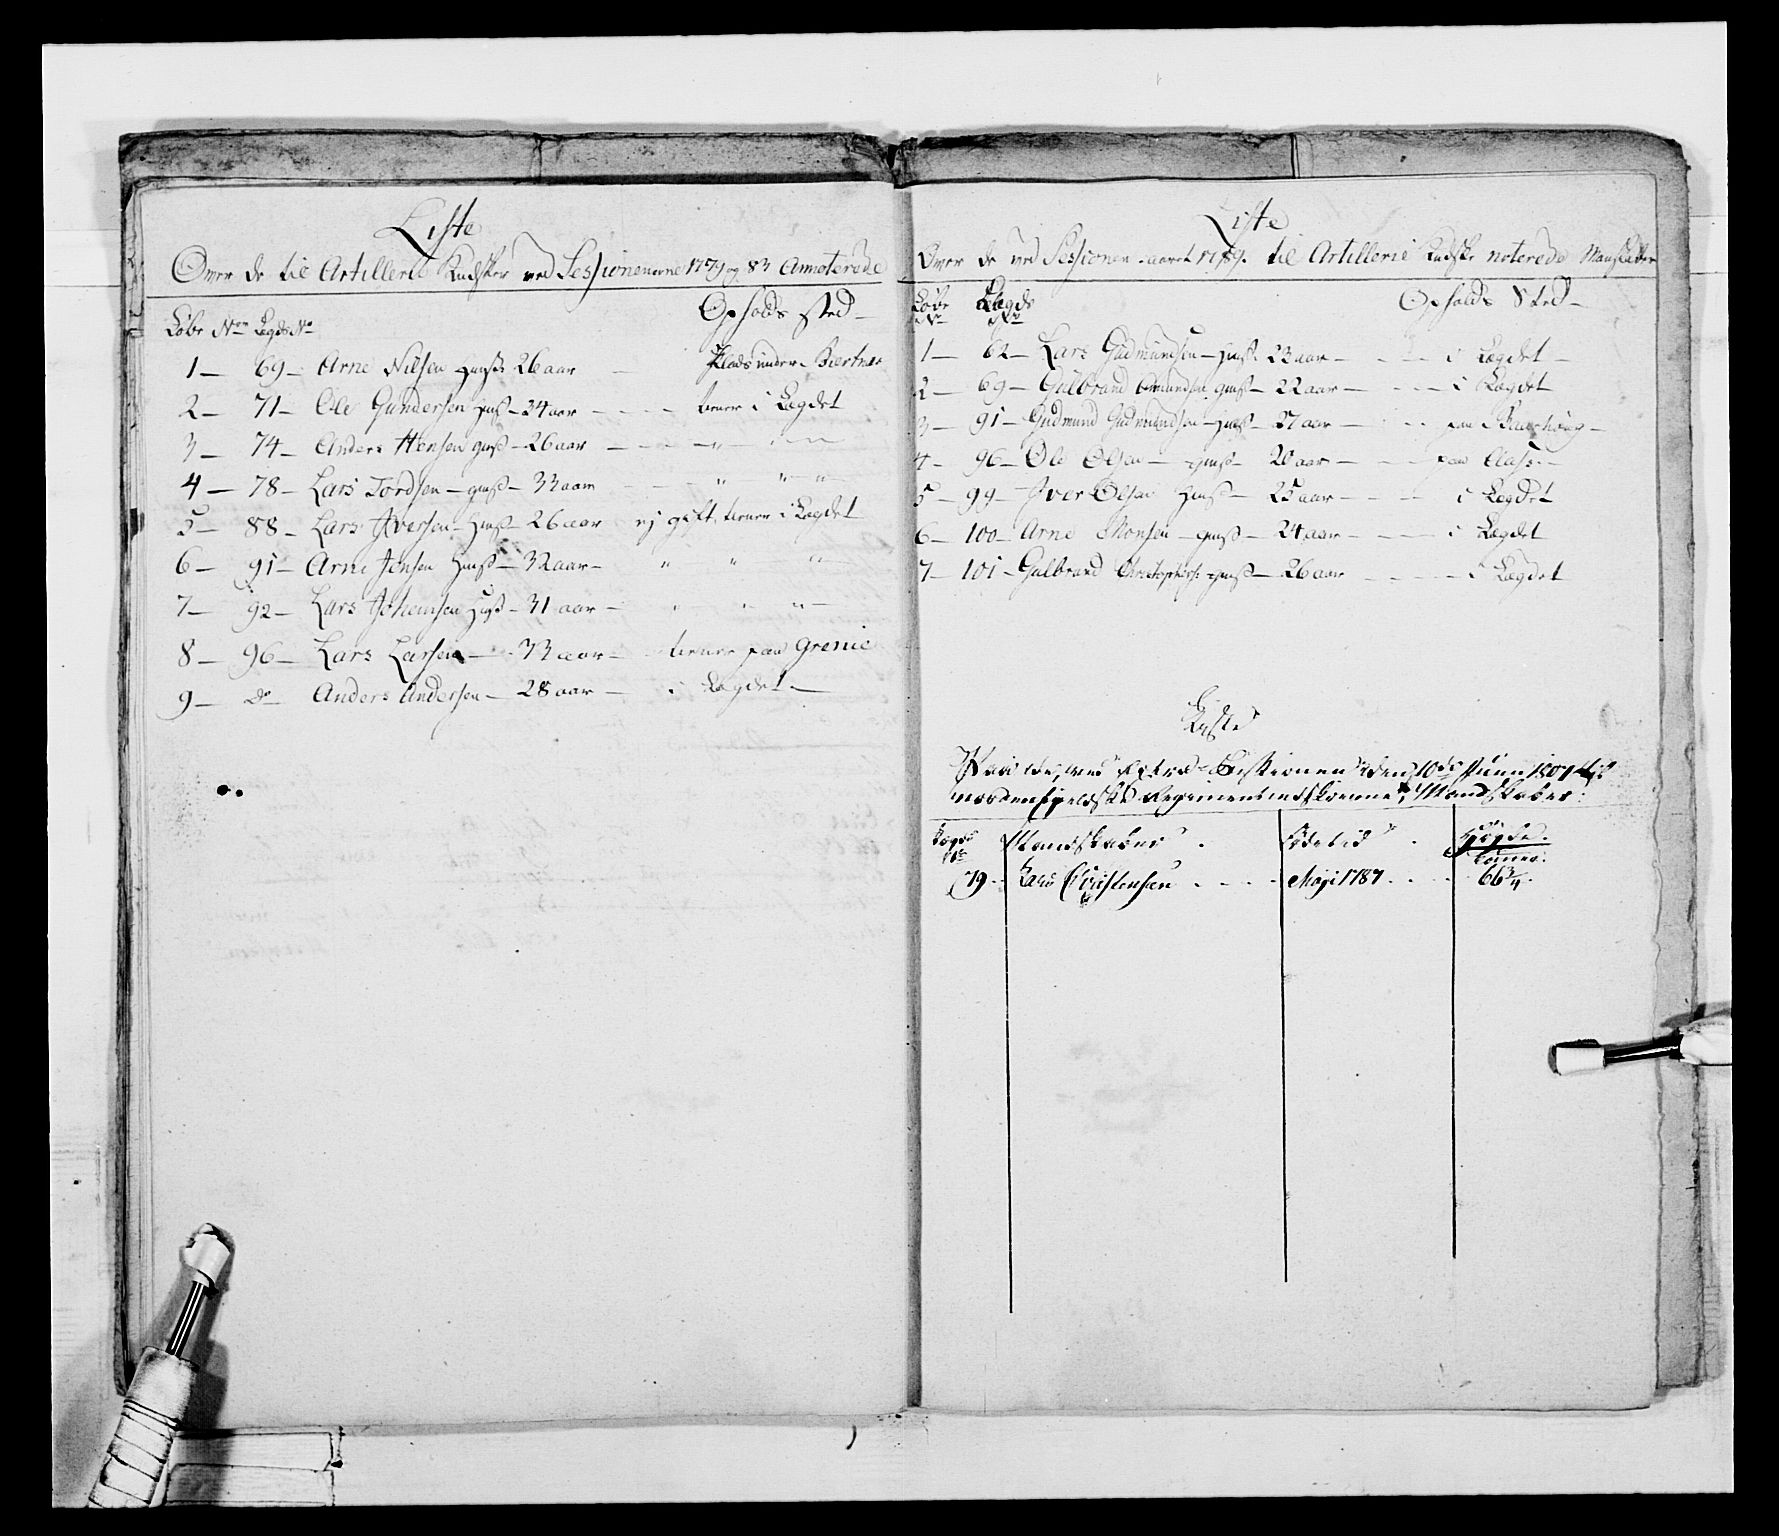 Liste
Over de til Artillerie Kudsker ved Sessionerne 1779 og 83 Annoterede
Løbe Non Legds No Opholds sted
1 — 69 — Arne Nilsen 26 aar — Plads under
2 — 71 — Ole Gundersen — 24 aar — tiener i Legdet
3 — 74 — Anders Hansen — 26 aar — " — " — "
4 — 78 — Lars Tordsen — 33 aar — " " "
5 — 88 — Lars Iversen — 26 aar ej gift, tiener i Legdet
6 — 91 — Arne Jensen — 32 aar — " " "
7 — 92 — Lars Johansen — 31 aar — " " "
8 — 96 — Lars Larsen — 33 aar — tiener paa Grenie
9 — do Anders Andersen — 28 aar — i Legdet —
Liste
Over de ved Sessionen aaret 1789 til Artillerie Kudske noterede Mandskaber
Løbe No Legds No Opholds Sted —
1 — 62 — Lars Gudmundsen — 23 aar — i Legdet —
2 — 69 — Gulbrand Amundsen — 22 aar — i Legdet
3 — 91 — Gudmund Gudmundsen — 27 aar — paa
4 — 96 — Ole Olsen — 20 aar — paa
5 — 99 — Iver Olsen — 25 aar — i Legdet
6 — 100 — Arne Monsen — 24 aar — i Legdet
7 — 101 — Gulbrand Christophers: — 26 aar — i Legdet
Liste
Paa de, ved Extra-Sessionen den 10de Junii 1807 til
nordenfieldske Regiment udskrevne Mandskaber:
Legds No Mandskaber. Fødetid. Høyde. Tommer:
79. Lars Christensen Maji 1787 66 3/4.